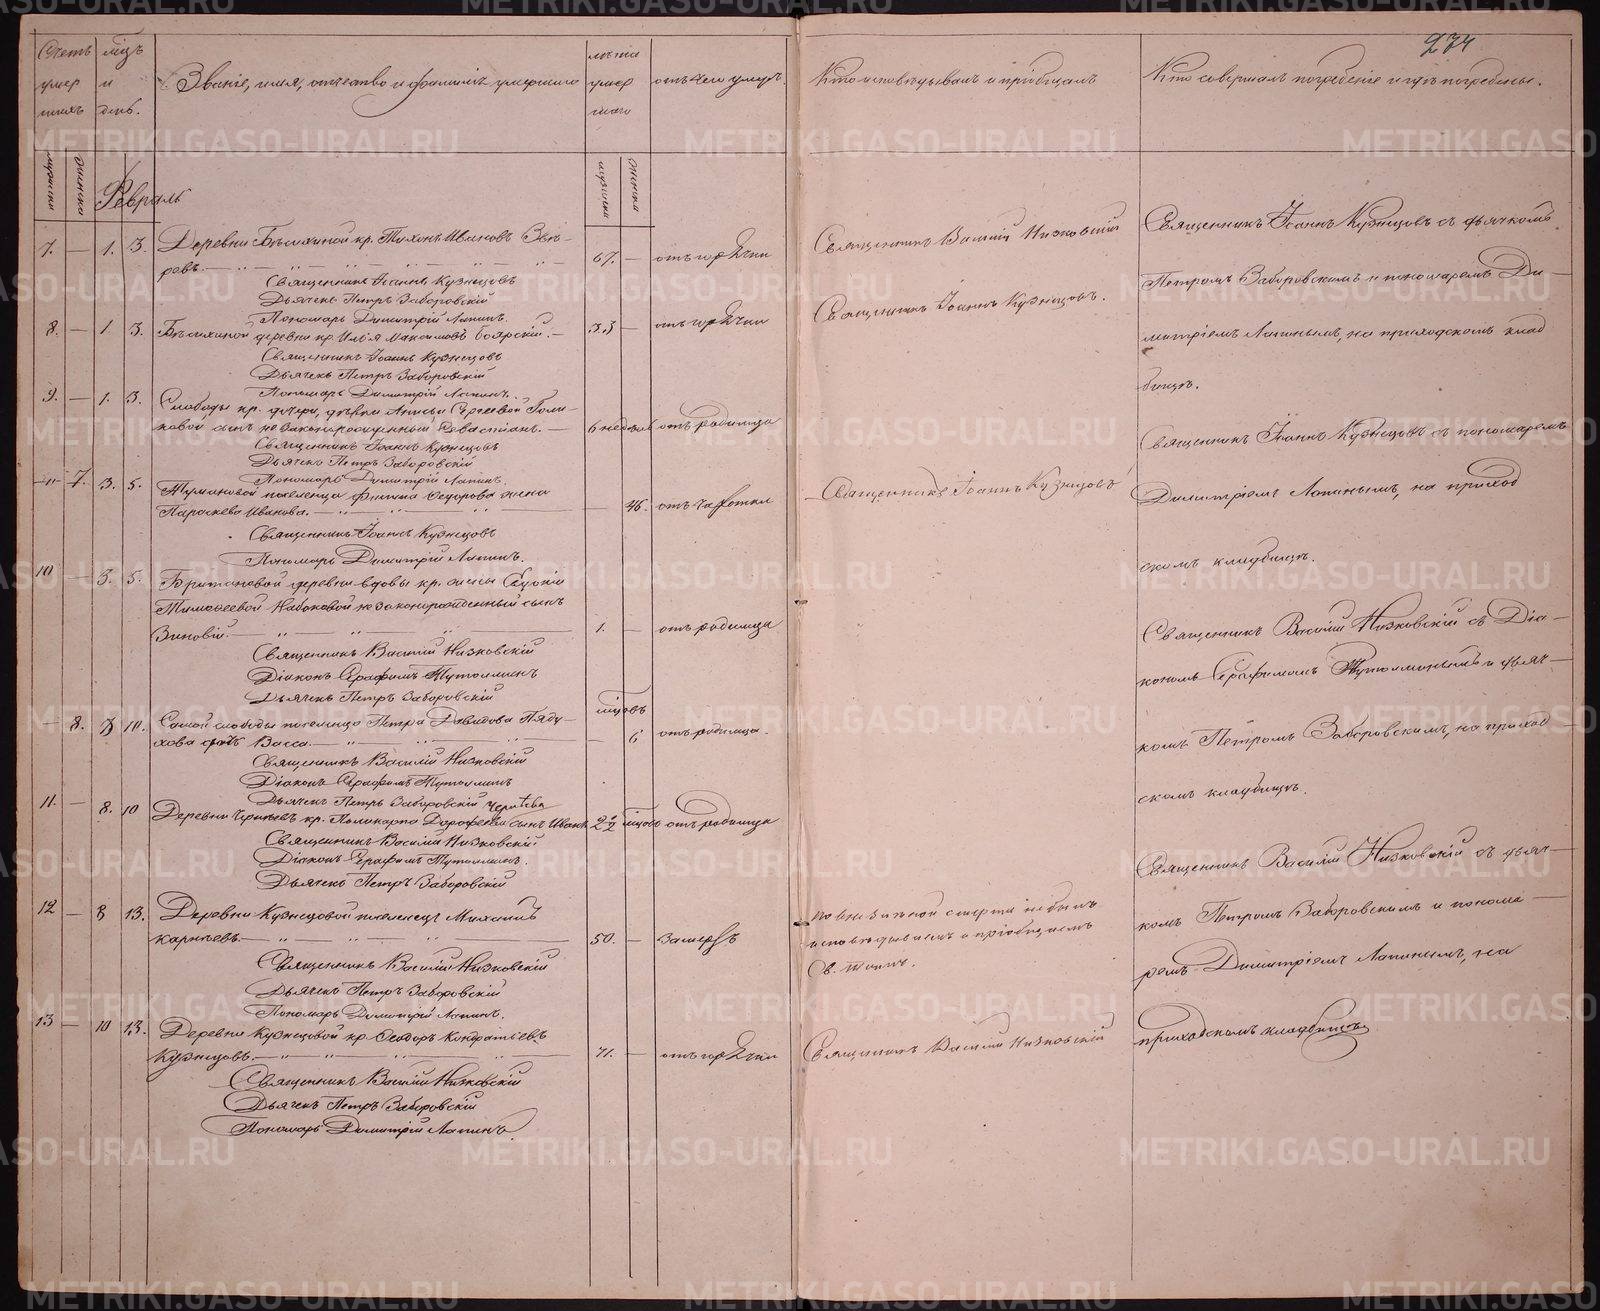 274
Счетъ умер шихъ
мцъ и день.
Званіе, имя, отчество и фамилія умершаго
лѣта умер шаго
отъ чего умеръ.
Кто исповѣдывалъ и пріобщалъ
Кто совершалъ погребеніе и гдѣ погребены.
мужска
женска
мужска
женска
Февраль
7. — 1. 3. Деревни Бѣлихиной кр. Тихонъ Ивановъ Звѣ-
ревъ. 67. — отъ горячки
Священникъ Іоаннъ Кузнецовъ
Дьячекъ Петръ Заборовскій
Пономарь Димитрій Лапинъ.
8. — 1. 3. Бѣлихиной деревни кр. Илья Максимовъ Боярскій. — 33 — отъ горячки
Священникъ Іоаннъ Кузнецовъ
Дьячекъ Петръ Заборовскій
Пономарь Димитрій Лапинъ.
9. — 1. 3. Слободы кр. дочери, дѣвки Анисьи Сергеевой Голи-
ковой сынъ незаконнорожденный Севастіанъ. — 6 недѣль отъ родимца
Священникъ Іоаннъ Кузнецовъ
Дьячекъ Петръ Заборовскій
Пономарь Димитрій Лапинъ.
— 7. 3. 5. Тумановой поселенца Филипа Ѳедорова жена
Параскева Иванова. — 46. отъ чахотки
Священникъ Іоаннъ Кузнецовъ
Пономарь Димитрій Лапинъ.
10 — 3. 5. деревни вдовы кр. жены
Тимофеевой Набоковой незаконорожденный сынъ
Зиновій. 1. — отъ родимца
Священникъ Василій Низковскій
Діаконъ Серафимъ Тутолминъ
Дьячекъ Петръ Заборовскій
— 8. 8 10. Самой слободы поселенца Петра Давидова
дочь Васса. — мцовъ 6 отъ родимца.
Священникъ Василій Низковскій
Діаконъ Серафимъ Тутолминъ
Дьячекъ Петръ Заборовскій
11. — 8. 10 Деревни кр. Поликарпа Дорофеева сынъ Иванъ 2 1/2 мцовъ отъ родимца
Священникъ Василій Низковскій
Діаконъ Серафимъ Тутолминъ.
Дьячекъ Петръ Заборовскій
12 — 8 13. Деревни Кузнецовой поселенецъ Михаилъ
Карпѣевъ. 50. — замерзъ
Священникъ Василій Низковскій
Дьячекъ Петръ Заборовскій
Пономарь Димитрій Лапинъ.
13 — 10 13. Деревни Кузнецовой кр. Ѳеодоръ Кондратьевъ
Кузнецовъ. 71. — отъ горячки
Священникъ Василій Низковскій
Дьячекъ Петръ Заборовскій
Пономарь Димитрій Лапинъ
Священникъ Василій Низковскій
Священникъ Іоаннъ Кузнецовъ.
Священникъ Іоаннъ Кузнецовъ
По внезапной смерти не былъ
исповѣдываемъ и пріобщаемъ
Св. таинъ.
Священникъ Василій Низковскій
Священникъ Іоаннъ Кузнецовъ съ дьячкомъ
Петромъ Заборовскимъ и пономаремъ Ди-
митріемъ Лапинымъ, на приходскомъ клад
бищѣ.
Священникъ Іоаннъ Кузнецовъ съ пономаремъ
Димитріемъ Лапинымъ, на приход
скомъ кладбищѣ.
Священникъ Василій Низковскій съ Діа-
кономъ Серафимомъ Тутолминымъ и дьяч-
комъ Петромъ Заборовскимъ, на приход
скомъ кладбищѣ.
Священникъ Василій Низковскій съ дьяч-
комъ Петромъ Заборовскимъ и понома-
ремъ Димитріемъ Лапинымъ, на
приходскомъ кладбищѣ
METRIKI.GASO-URAL.RU